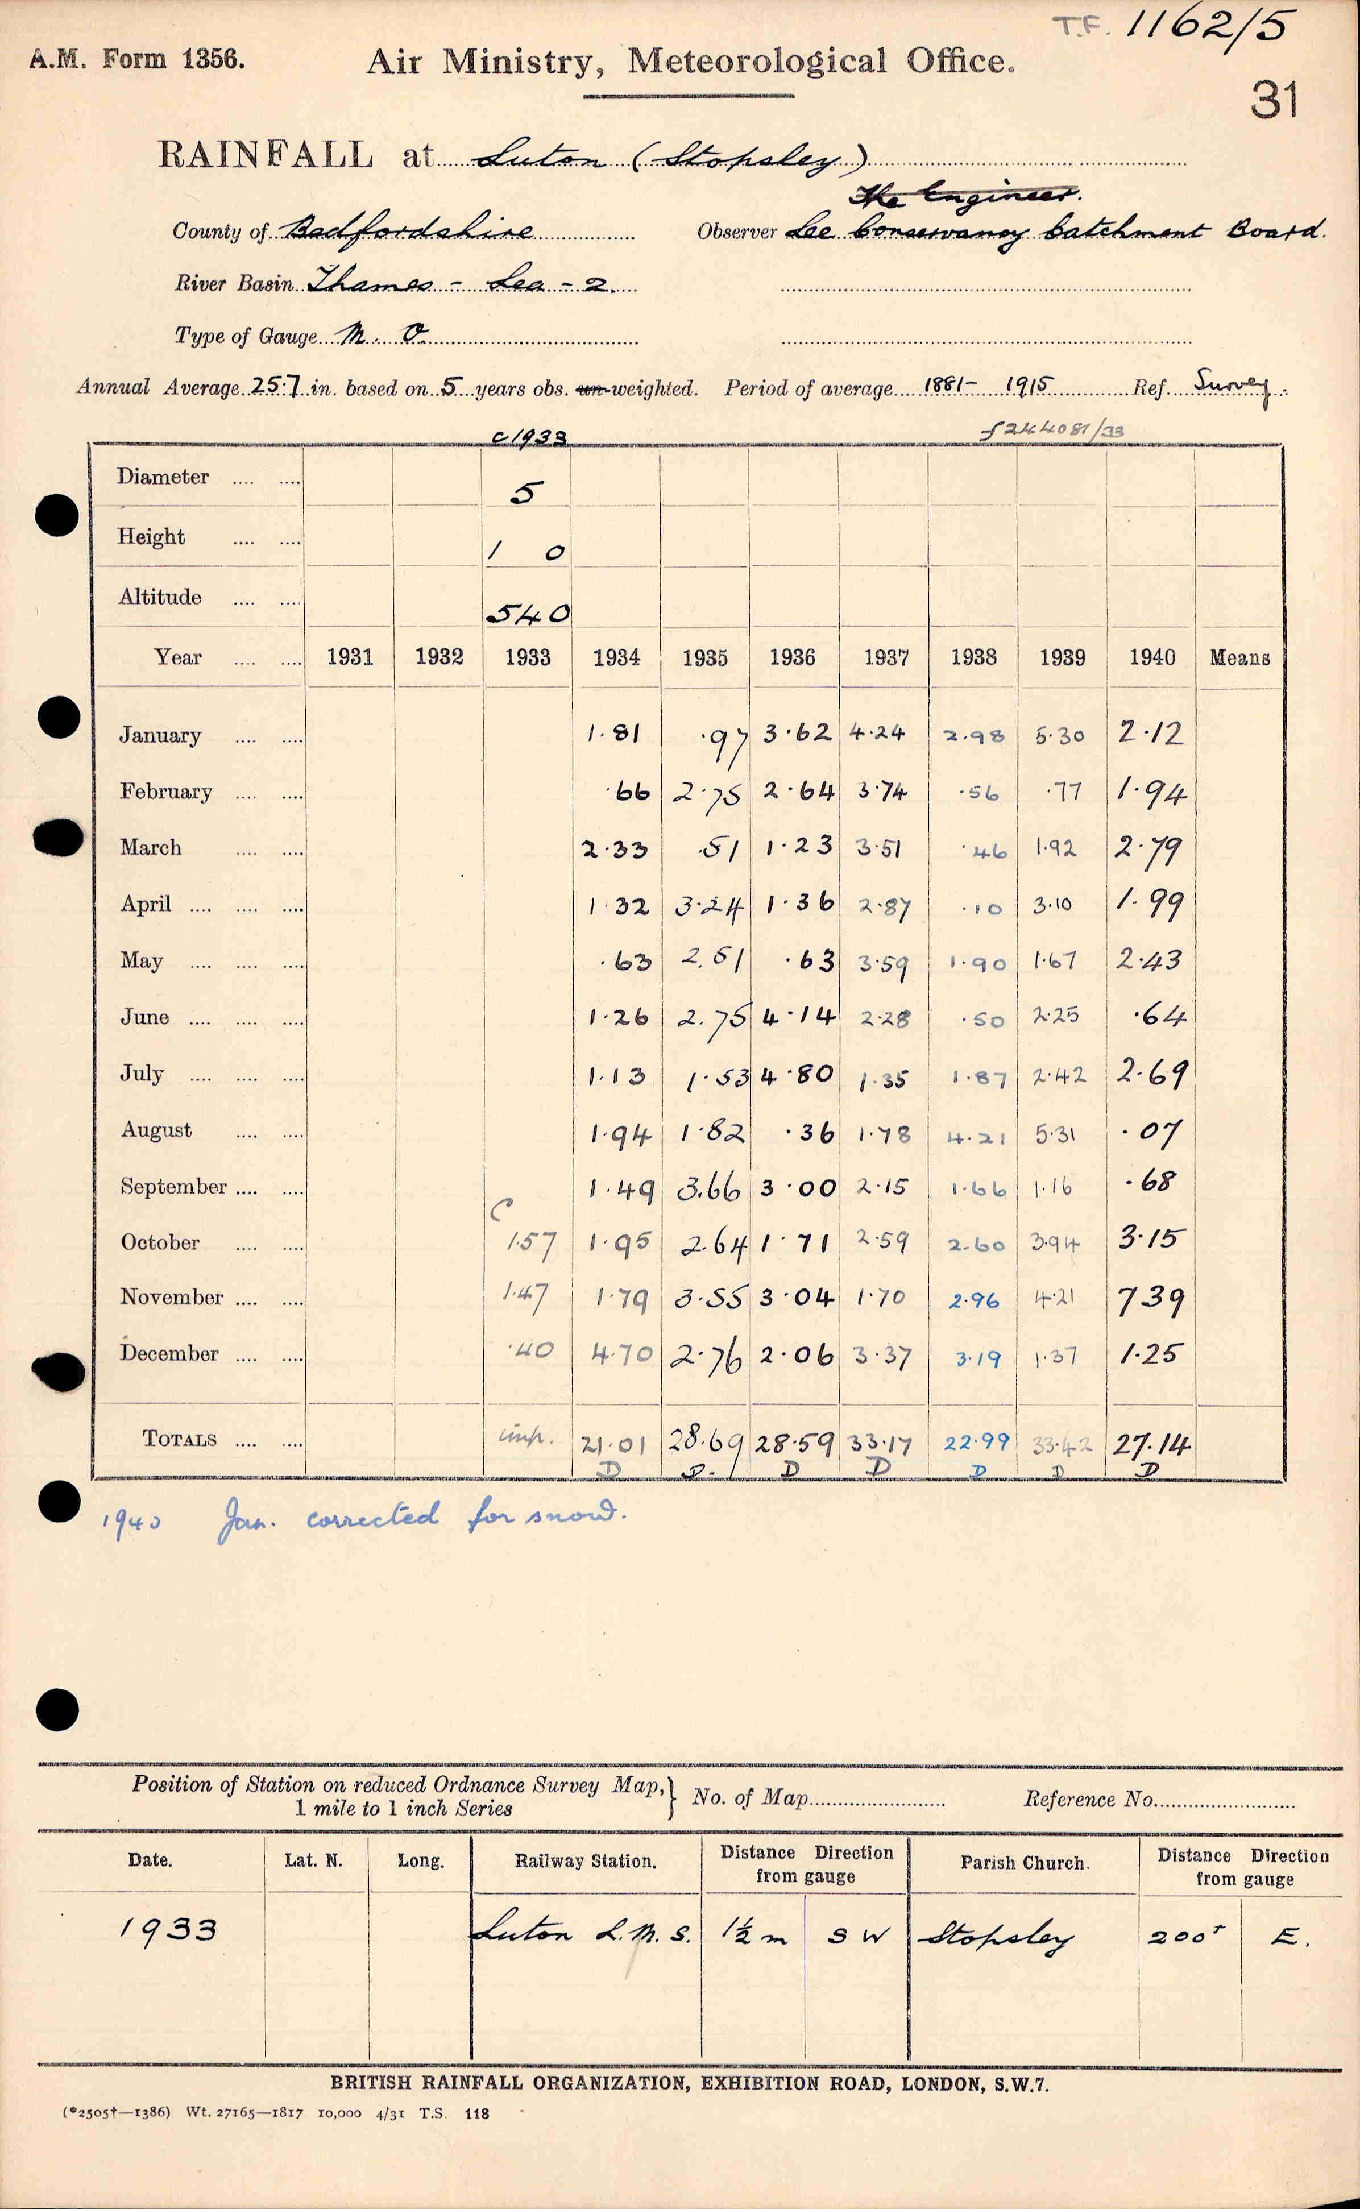 T.F. 1162/5
A.M. Form 1356. Air Ministry, Meteorological Office.
31
RAINFALL at Luton (Stopsley)
The Engineer.
County of Bedfordshire Observer Lee Conservancy Catchment Board.
River Basin Thames - Lea - 2.
Type of Gauge M. O.
Annual Average 25.7 in. based on 5 years obs. un-weighted. Period of average 1881- 1915 Ref. Survey.
c1933 f244081/33
Diameter .... .... 5
Height .... .... 1 0
Altitude .... .... 540
Year .... .... 1931 1932 1933 1934 1935 1936 1937 1938 1939 1940 Means
January .... .... 1.81 .97 3.62 4.24 2.98 5.30 2.12
February .... .... .66 2.75 2.64 3.74 .56 .77 1.94
March .... .... 2.33 .51 1.23 3.51 .46 1.92 2.79
April .... .... .... 1.32 3.24 1.36 2.87 .10 3.10 1.99
May .... .... .... .63 2.51 .63 3.59 1.90 1.67 2.43
June .... .... .... 1.26 2.75 4.14 2.28 .50 2.25 .64
July .... .... .... 1.13 1.53 4.80 1.35 1.87 2.42 2.69
August .... .... 1.94 1.82 .36 1.78 4.21 5.31 .07
September .... .... 1.49 3.66 3.00 2.15 1.66 1.16 .68
C
October .... .... 1.57 1.95 2.64 1.71 2.59 2.60 3.94 3.15
November .... .... 1.47 1.79 3.55 3.04 1.70 2.96 4.21 7.39
December .... .... .40 4.70 2.76 2.06 3.37 3.19 1.37 1.25
TOTALS .... .... imp. 21.01 28.69 28.59 33.17 22.99 33.42 27.14
D D. D D D D D
1940 Jan. corrected for snow.
Position of Station on reduced Ordnance Survey Map,} No. of Map Reference No.
1 mile to 1 inch Series
Date. Lat. N. Long. Railway Station. Distance Direction from gauge Parish Church. Distance Direction from gauge
1933 Luton L.M.S. 1½ m SW Stopsley 200ˣ E.
BRITISH RAINFALL ORGANIZATION, EXHIBITION ROAD, LONDON, S.W.7.
(*2505†—1386) Wt. 27165—1817 10,000 4/31 T.S. 118